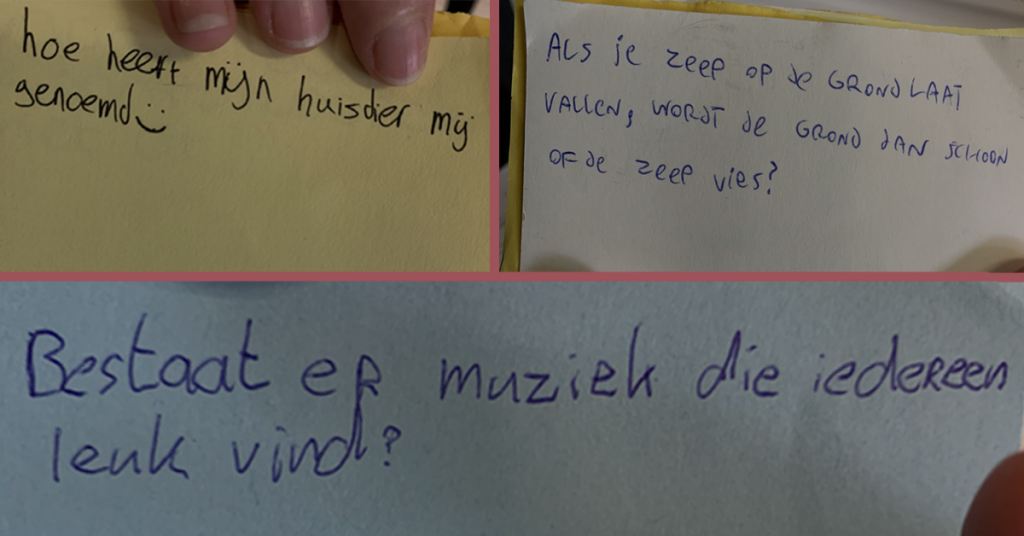 hoe heeft mijn huisdier mij
genoemd
Als je zeep op de GROND LAAT
VALLEN, WORDT de GROND dAN SCHOON
OF de zeep vies?
Bestaat er muziek die iedereen
leuk vind?